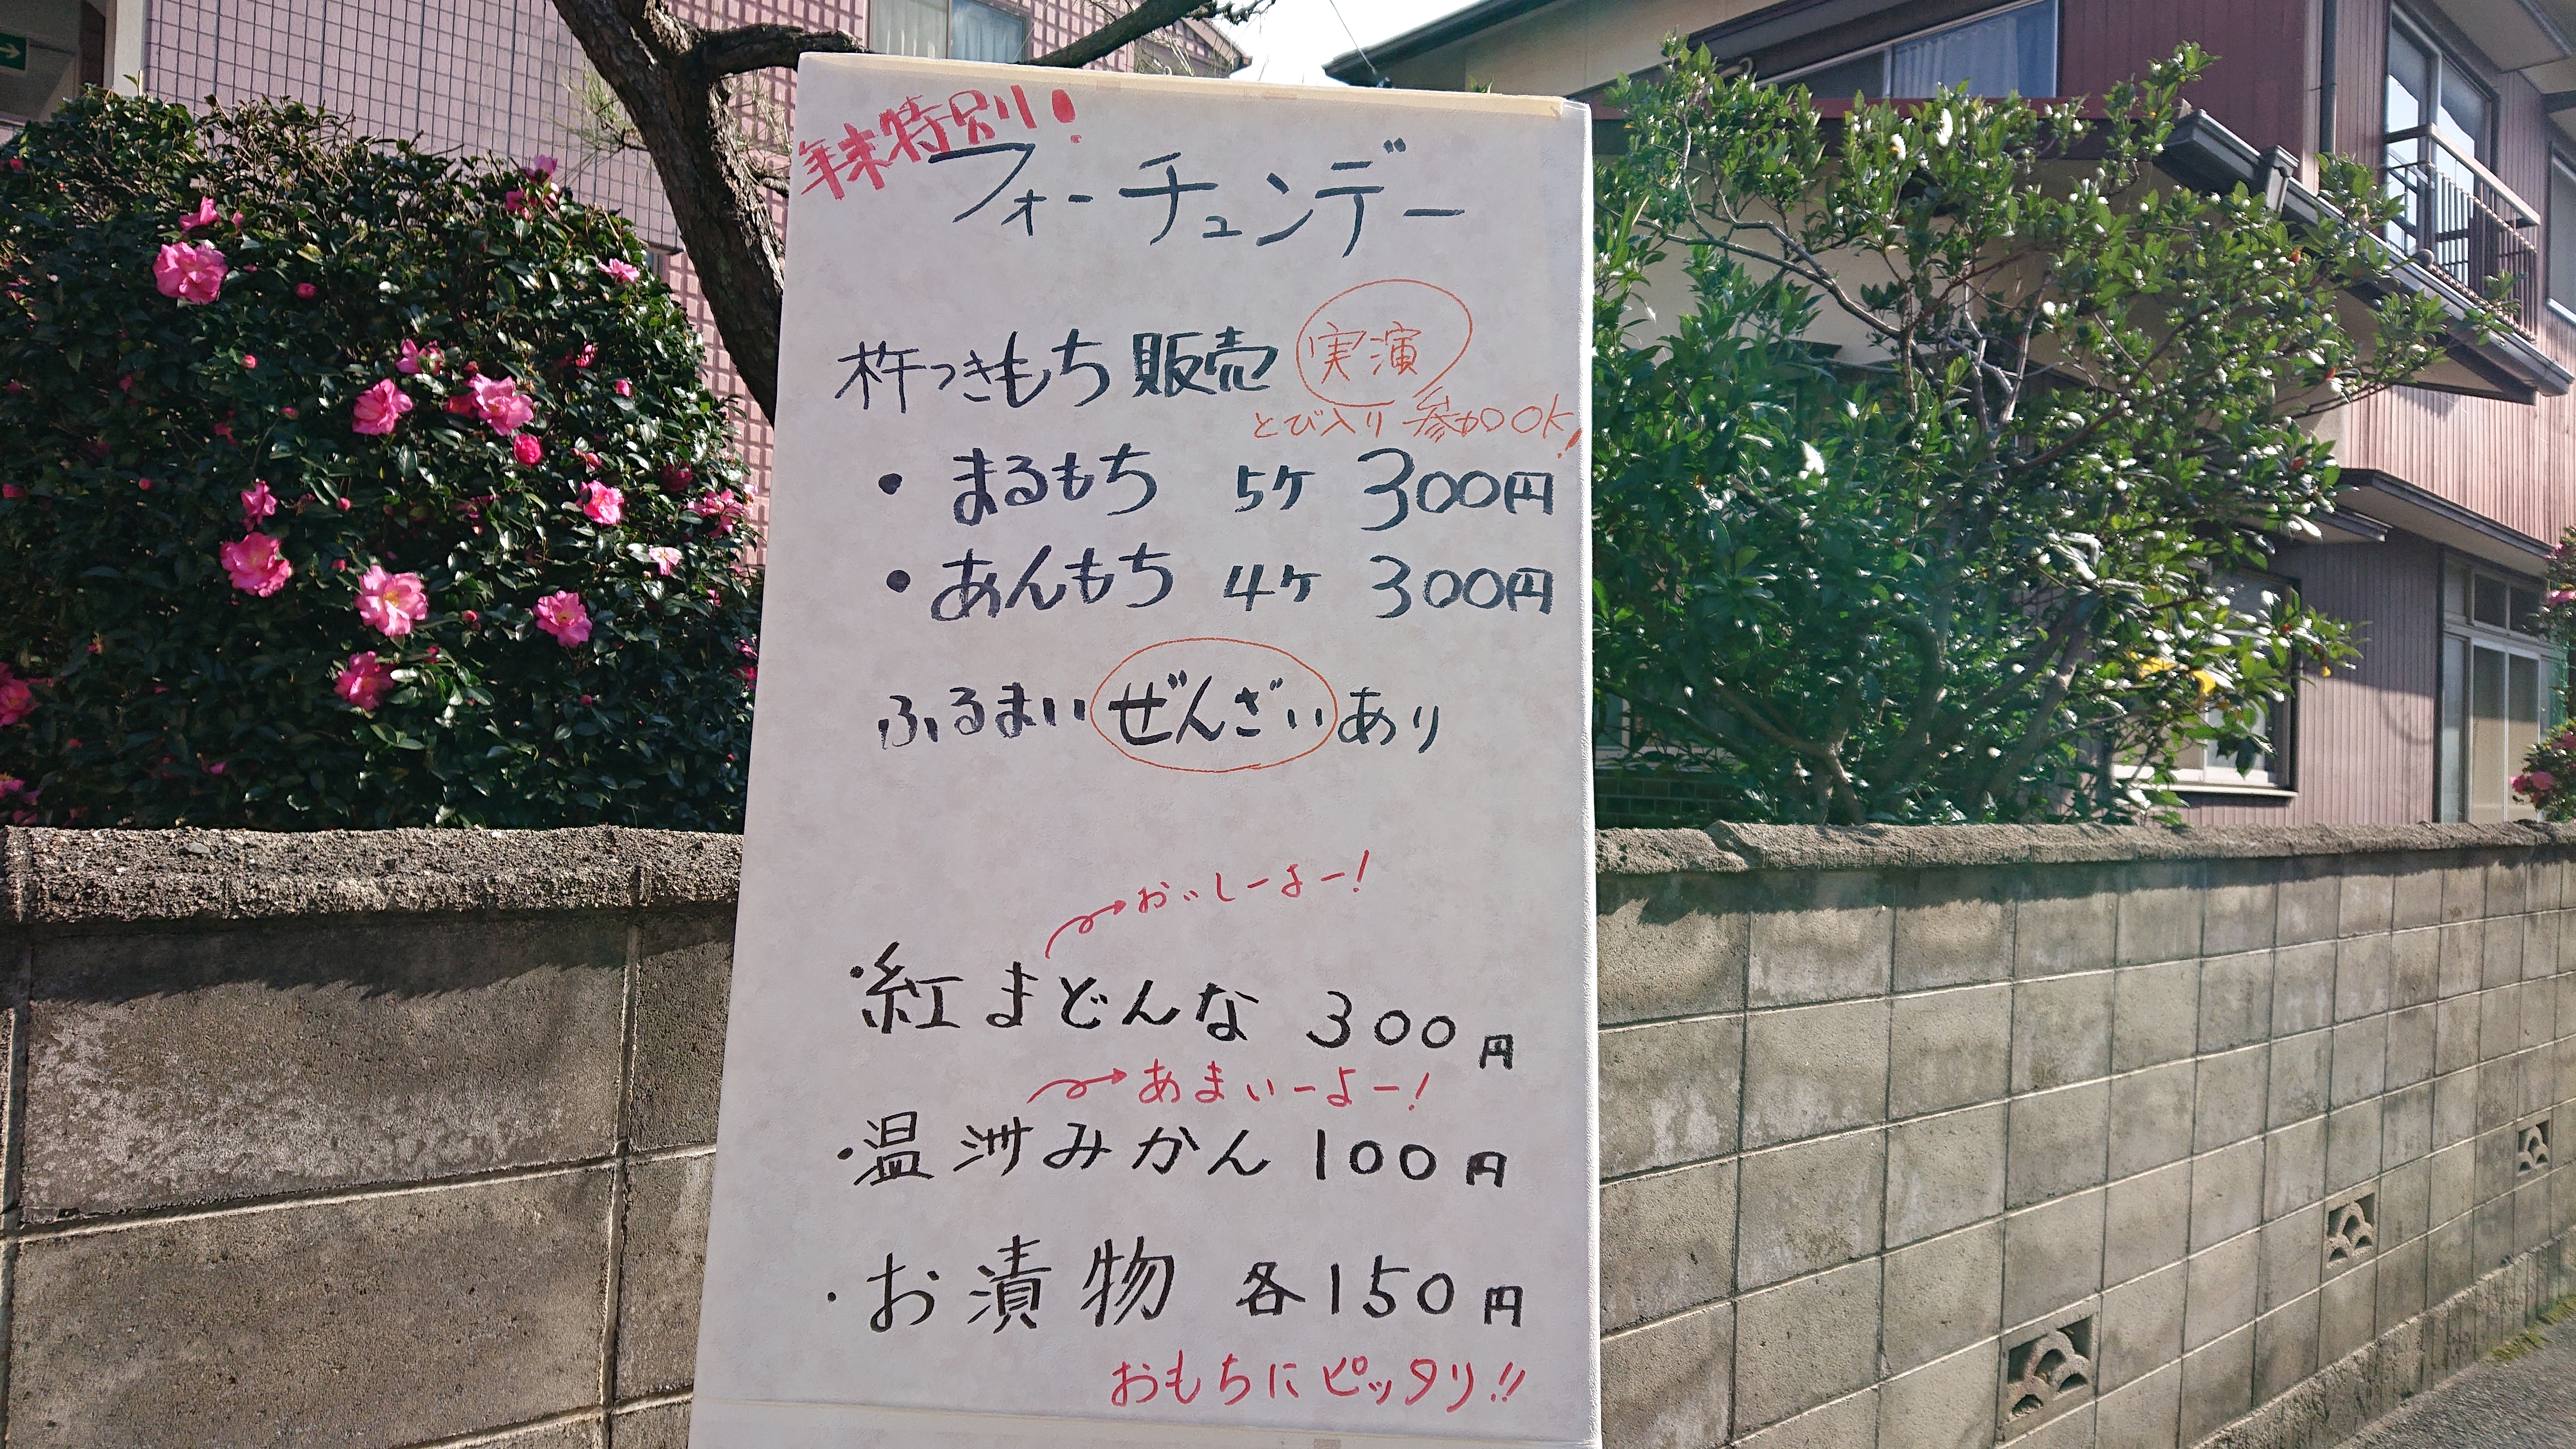 年末特別!
フォーチュンデー
杵つきもち販売 実演
とび入り参加OK!
・まるもち 5ヶ 300円
・あんもち 4ヶ 300円
ふるまいぜんざいあり
おいしーよー!
・紅まどんな 300円
あまいーよー!
・温洲みかん 100円
・お漬物 各150円
おもちにピッタリ!!